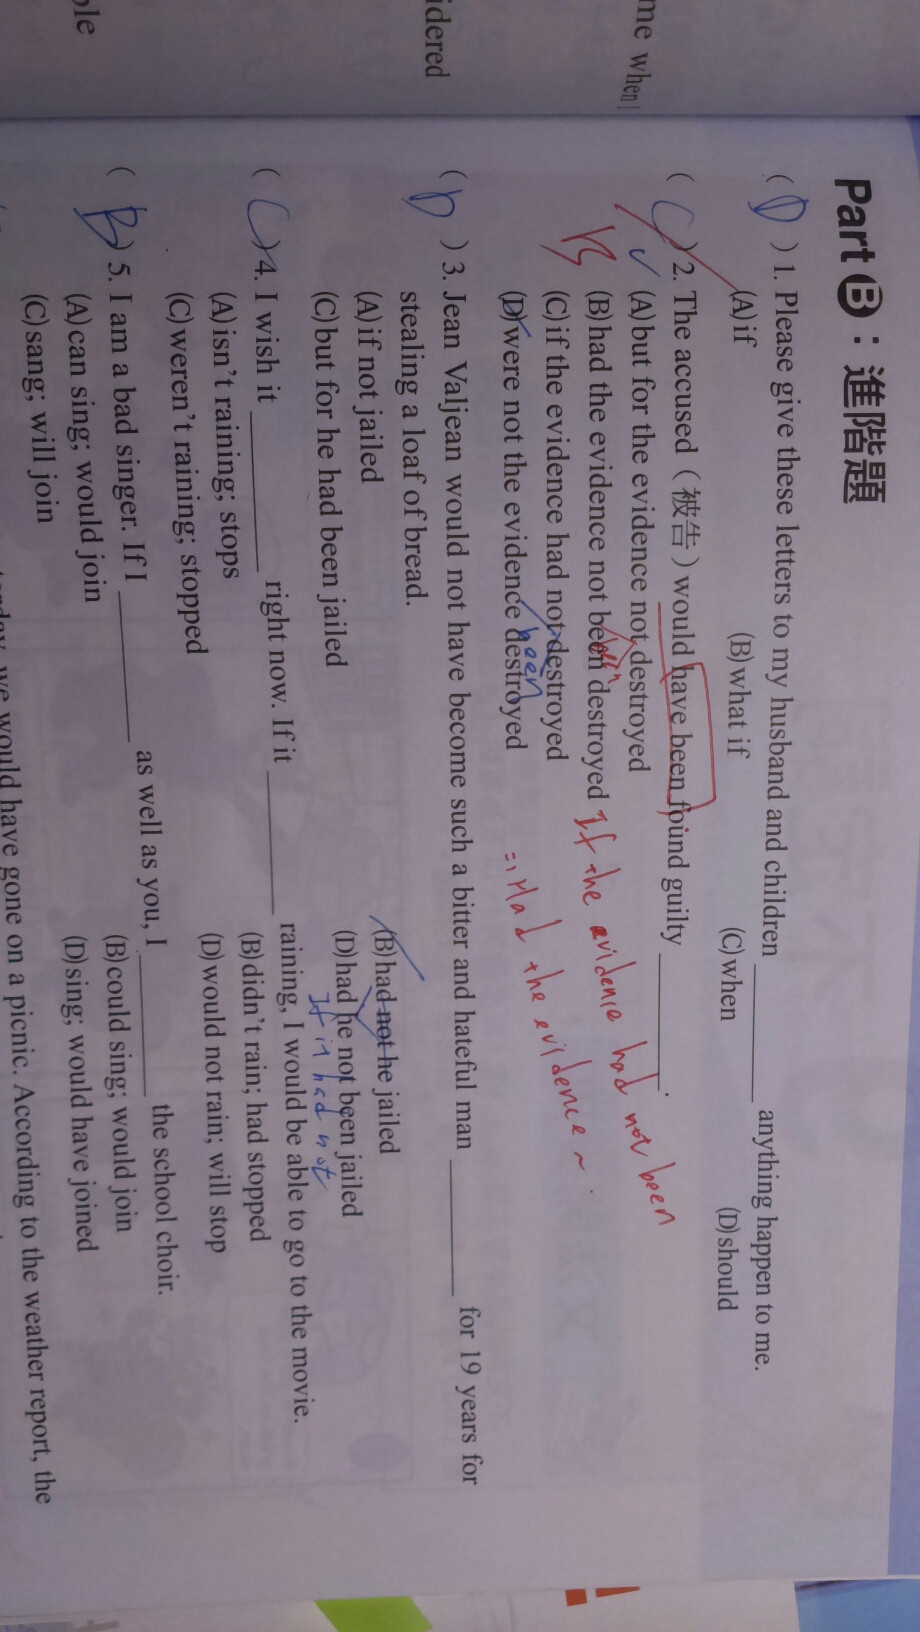 me when
idered
ple
Part B：進階題
( D ) 1. Please give these letters to my husband and children ________ anything happen to me.
(A)if (B)what if (C)when (D)should
( C ) 2. The accused（被告）would have been found guilty ________.
B
(A)but for the evidence not destroyed
(B)had the evidence not been destroyed
(C)if the evidence had not destroyed
been
(D)were not the evidence destroyed
been
If the evidence had not been
=> Had the evidence ~
( D ) 3. Jean Valjean would not have become such a bitter and hateful man ________ for 19 years for
stealing a loaf of bread.
(A)if not jailed (B)had not he jailed
(C)but for he had been jailed (D)had he not been jailed
If
had not
( C ) 4. I wish it ________ right now. If it ________ raining, I would be able to go to the movie.
(A)isn't raining; stops (B)didn't rain; had stopped
(C)weren't raining; stopped (D)would not rain; will stop
( B ) 5. I am a bad singer. If I ________ as well as you, I ________ the school choir.
(A)can sing; would join (B)could sing; would join
(C)sang; will join (D)sing; would have joined
we would have gone on a picnic. According to the weather report, the